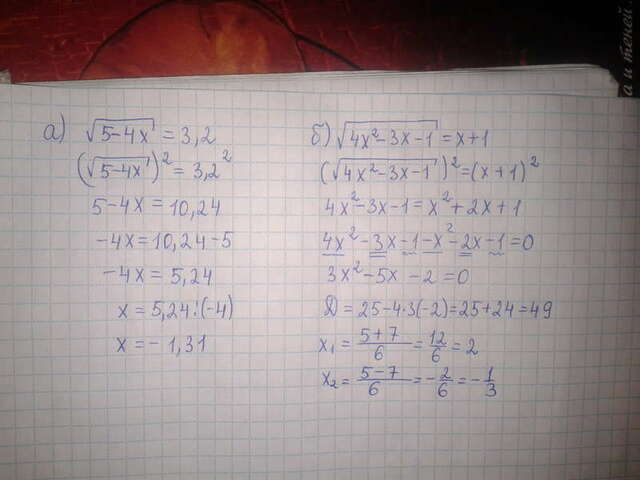 а) √5-4x = 3,2
(√5-4x)² = 3,2²
5-4x = 10,24
-4x = 10,24-5
-4x = 5,24
x = 5,24:(-4)
x = -1,31
б) √4x²-3x-1 = x+1
(√4x²-3x-1)² = (x+1)²
4x²-3x-1 = x²+2x+1
4x²-3x-1-x²-2x-1=0
3x²-5x-2=0
Д = 25-4·3(-2)=25+24=49
x₁ = 5+7/6 = 12/6 = 2
x₂ = 5-7/6 = -2/6 = -1/3